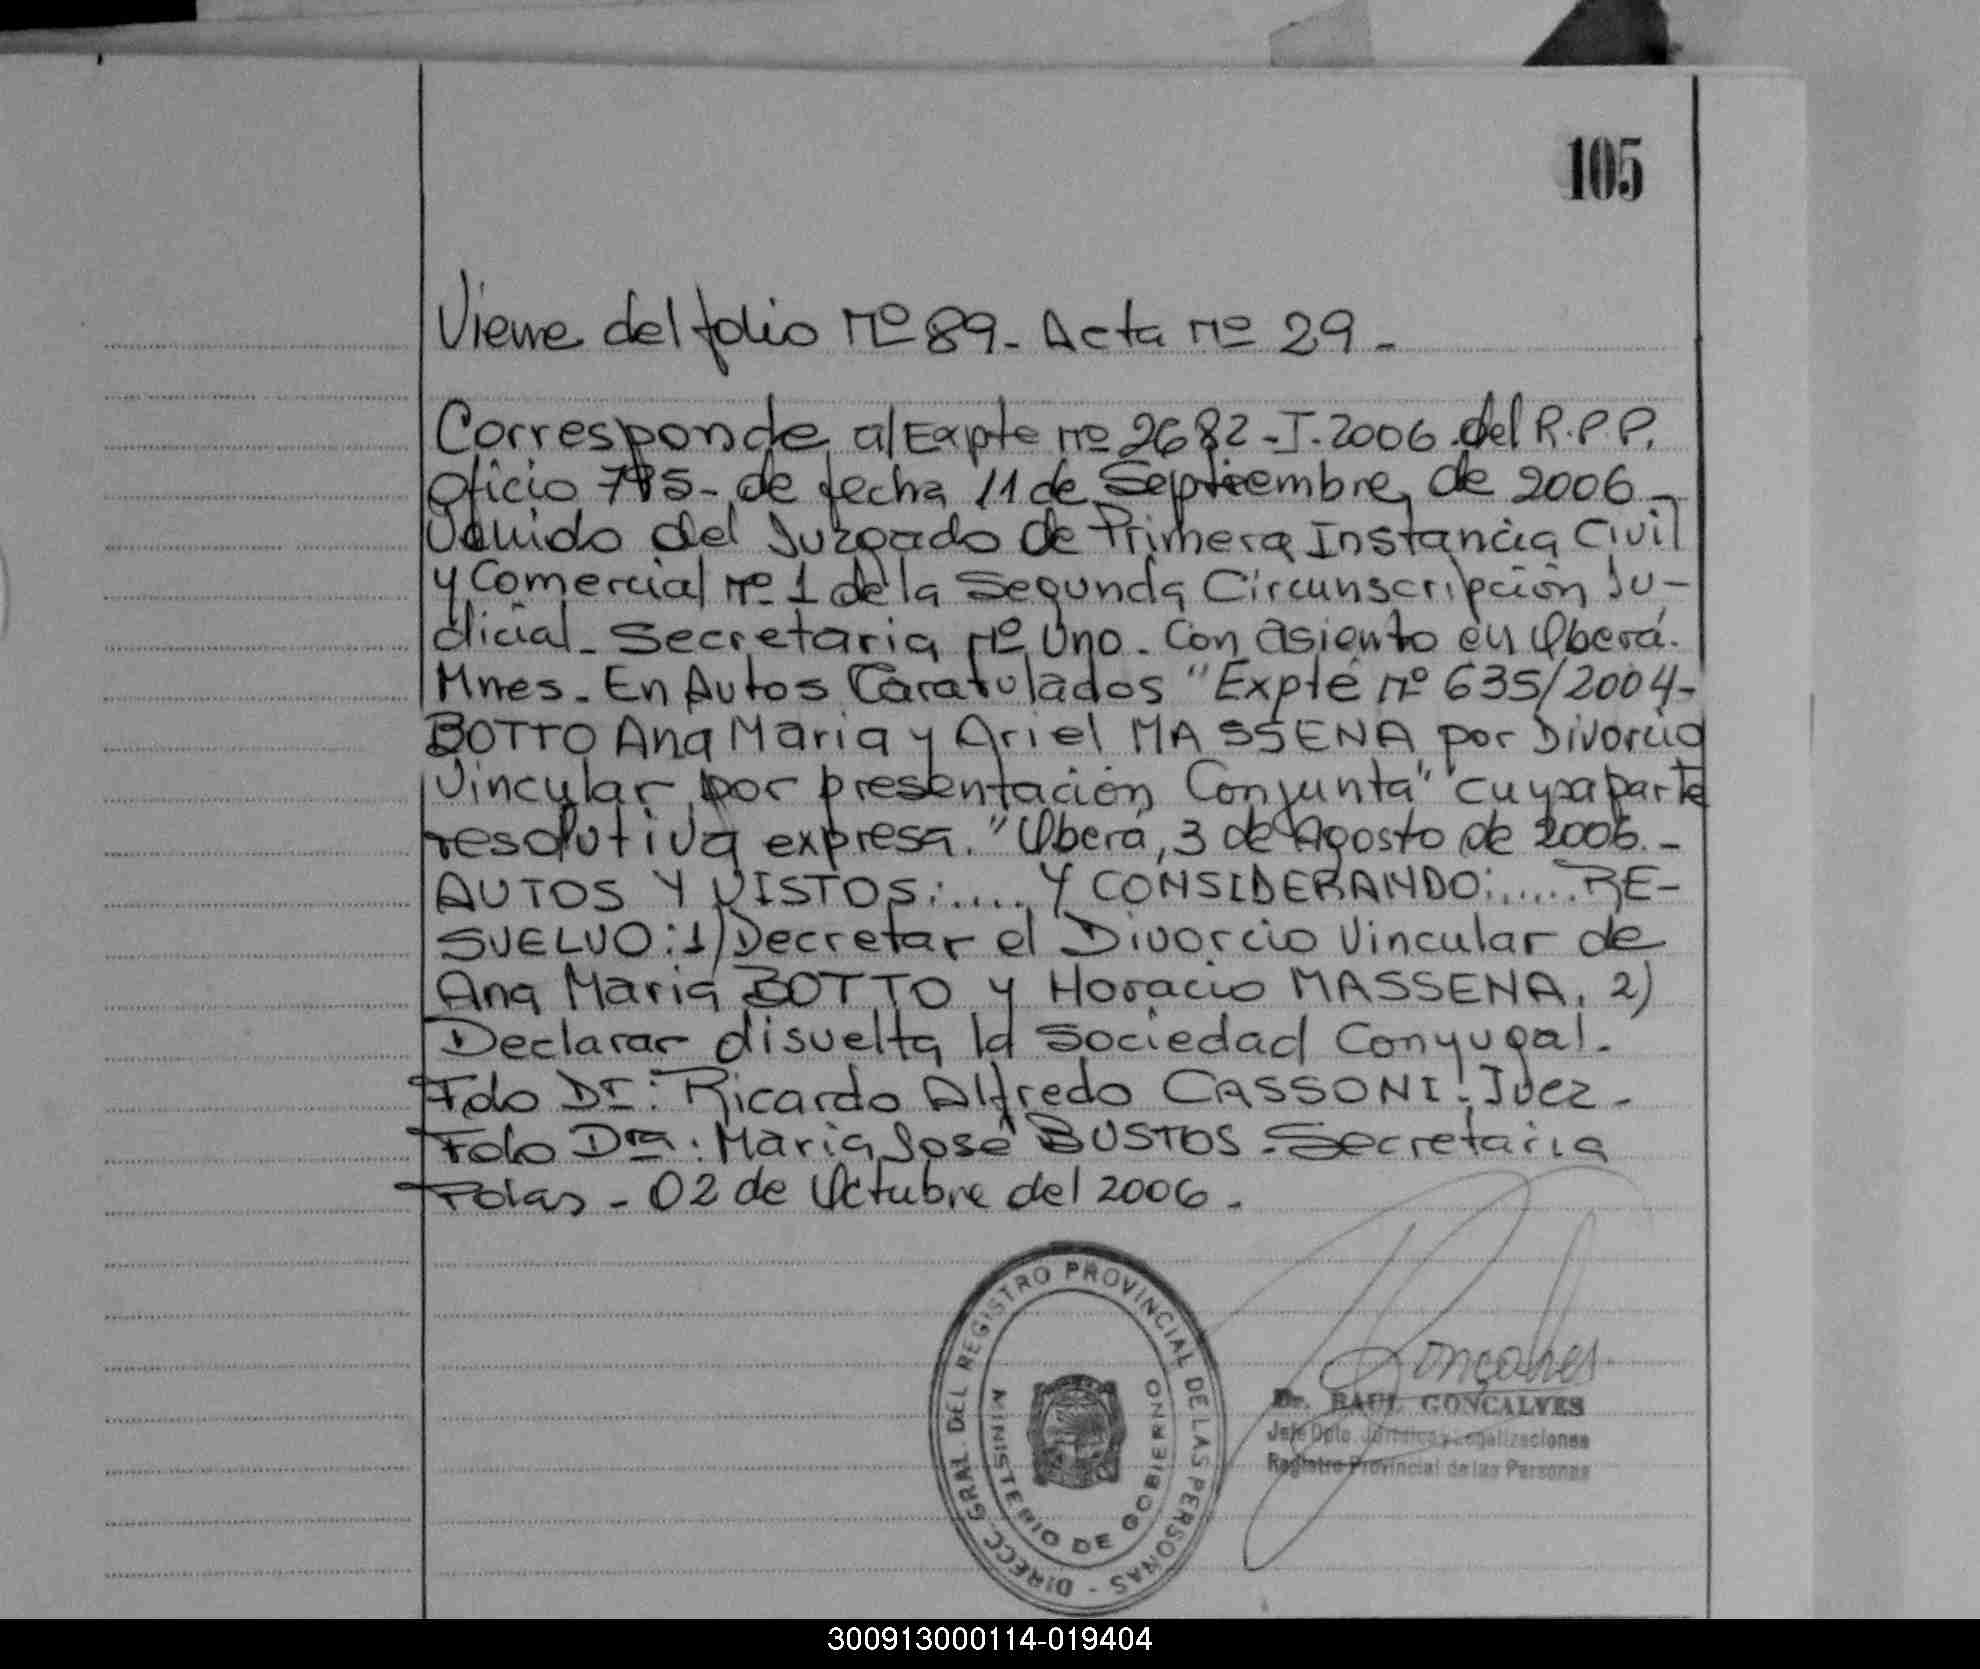 105
Viene del folio nº 89 - Acta nº 29 -
Corresponde al Expte nº 2682-I-2006 del R.P.P.
Oficio de fecha 11 de Septiembre de 2006 -
Venido del Juzgado de Primera Instancia Civil
y Comercial nº 1 de la Segunda Circunscripción Ju-
dicial - Secretaria nº Uno - Con asiento en Oberá.
Mnes - En Autos Caratulados "Expte nº 635/2004-
BOTTO Ana Maria y Ariel MASSENA por Divorcio
Vincular por presentación Conjunta" cuya parte
resolutiva expresa. "Oberá, 3 de Agosto de 2006. -
AUTOS Y VISTOS:..... Y CONSIDERANDO:..... RE-
SUELVO: 1) Decretar el Divorcio Vincular de
Ana Maria BOTTO y Horacio MASSENA. 2)
Declarar disuelta la Sociedad Conyugal.
Fdo Dr: Ricardo Alfredo CASSONI. Juez -
Fdo Dra: Maria José BUSTOS - Secretaria
Pdas - 02 de Octubre del 2006 -
DIRECC. GRAL. DEL REGISTRO PROVINCIAL DE LAS PERSONAS -
MINISTERIO DE GOBIERNO
Goncalves
Dr. RAUL GONCALVES
Jefe Dpto. Jurídica y Legalizaciones
Registro Provincial de las Personas
300913000114-019404